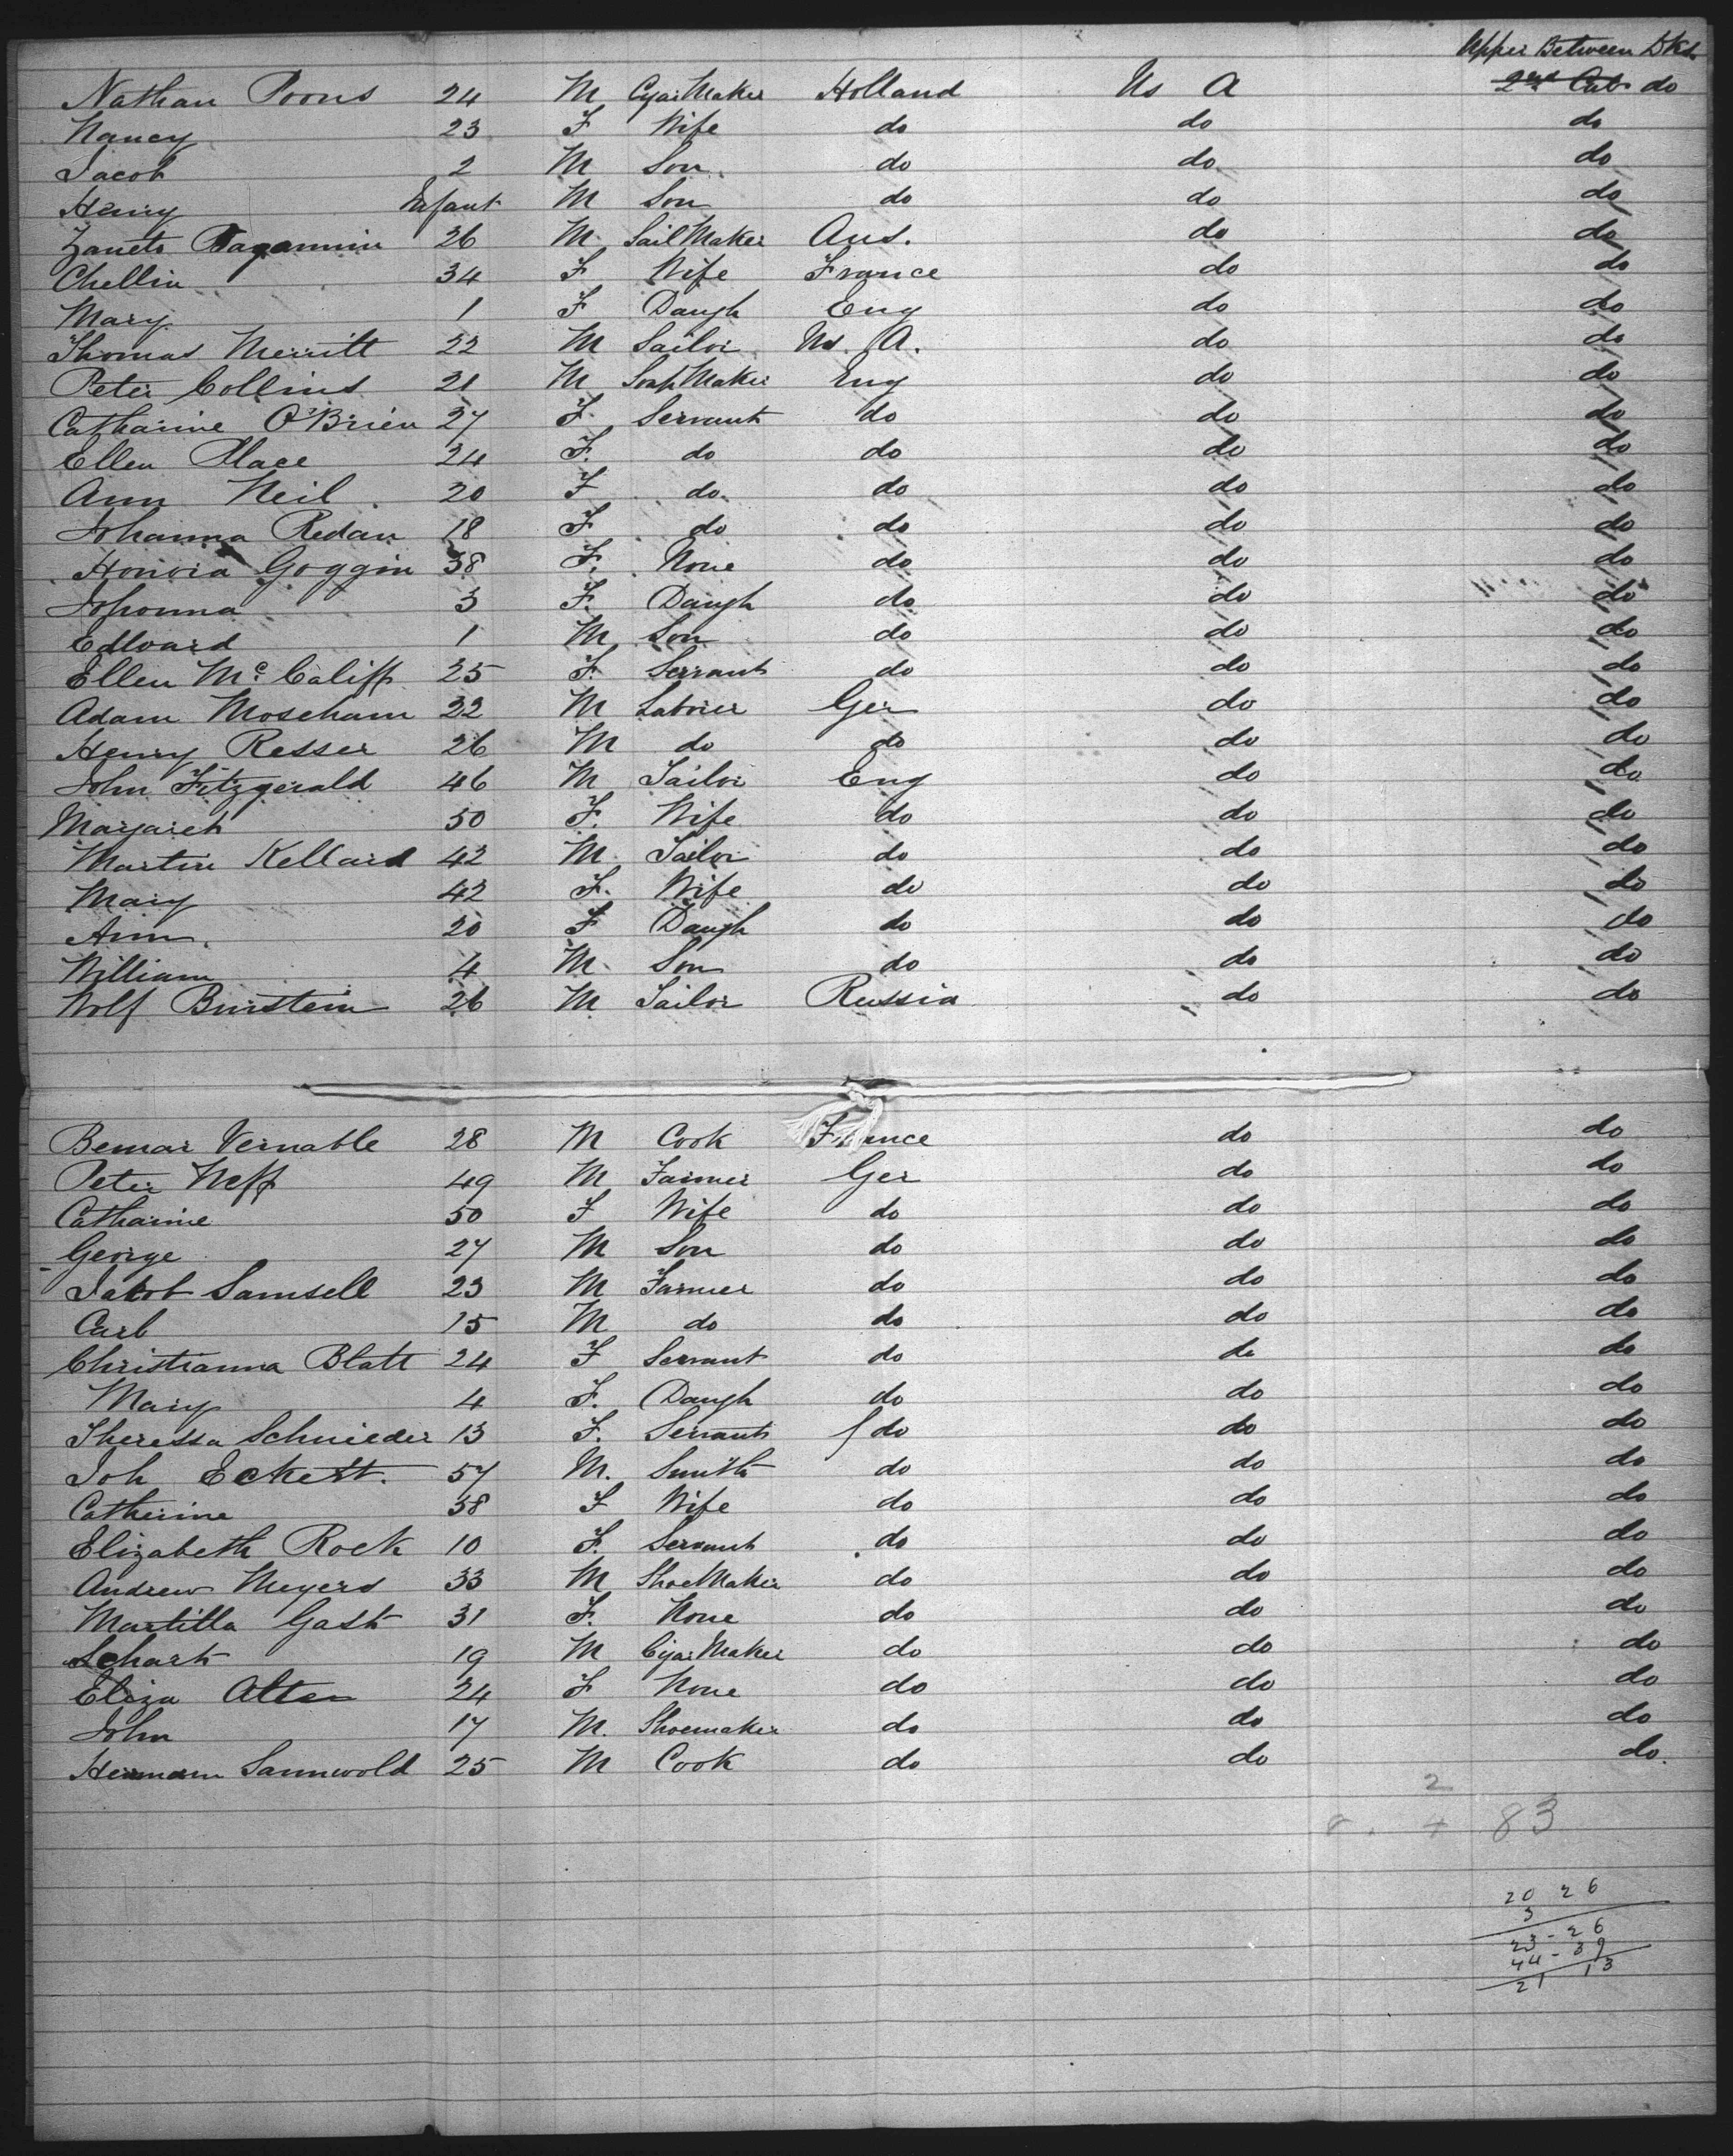 Upper Between Dks
Nathan Poons 24 M Cigar Maker Holland Us A 2nd Cab do
Nancy 23 F Wife do do do
Jacob 2 M Son do do do
Henry Infant M Son do do do
Zaneto Pagannini 26 M Sail Maker Aus. do do
Chellin 34 F Wife France do do
Mary 1 F Daugh Eng do do
Thomas Merritt 22 M Sailor Us. A. do do
Peter Collins 21 M Soap Maker Eng do do
Catharine O'Brien 27 F. Servant do do do
Ellen Place 24 F. do do do do
Ann Neil 20 F do do do do
Johanna Redan 18 F do do do do
Honora Goggin 38 F. None do do do
Johonna 3 F. Daugh do do do
Edward 1 M Son do do do
Ellen Mc. Califf 25 F. Servant do do do
Adam Moscham 22 M Laborer Ger do do
Henry Resser 26 M do do do do
John Fitzgerald 46 M Tailor Eng do do
Margaret 50 F. Wife do do do
Martin Kellard 42 M Tailor do do do
Mary 42 F. Wife do do do
Ann. 20 F Daugh do do do
William 4 M Son do do do
Wolf Burstein 26 M Tailor Russia do do
Bemar Vernable 28 M Cook France do do
Peter Neff 49 M Farmer Ger do do
Catharine 50 F Wife do do do
George 27 M Son do do do
Jacob Samsell 23 M Farmer do do do
Carl 15 M do do do do
Christianna Blatt 24 F Servant do do do
Mary 4 F. Daugh do do do
Theressa Schnieder 13 F. Servant do do do
Joh Eckert. 57 M. Smith do do do
Catherine 38 F Wife do do do
Elizabeth Rock 10 F. Servant do do do
Andrew Meyers 33 M Shoe Maker do do do
Martilla Gash 31 F. None do do do
Schart 19 M Cigar Maker do do do
Eliza Alten 24 F None do do do
John 17 M. Shoemaker do do do
Hermann Sannwold 25 M Cook do do do.
2
4 83
20 26
3
23 - 26
44 - 39
21 13